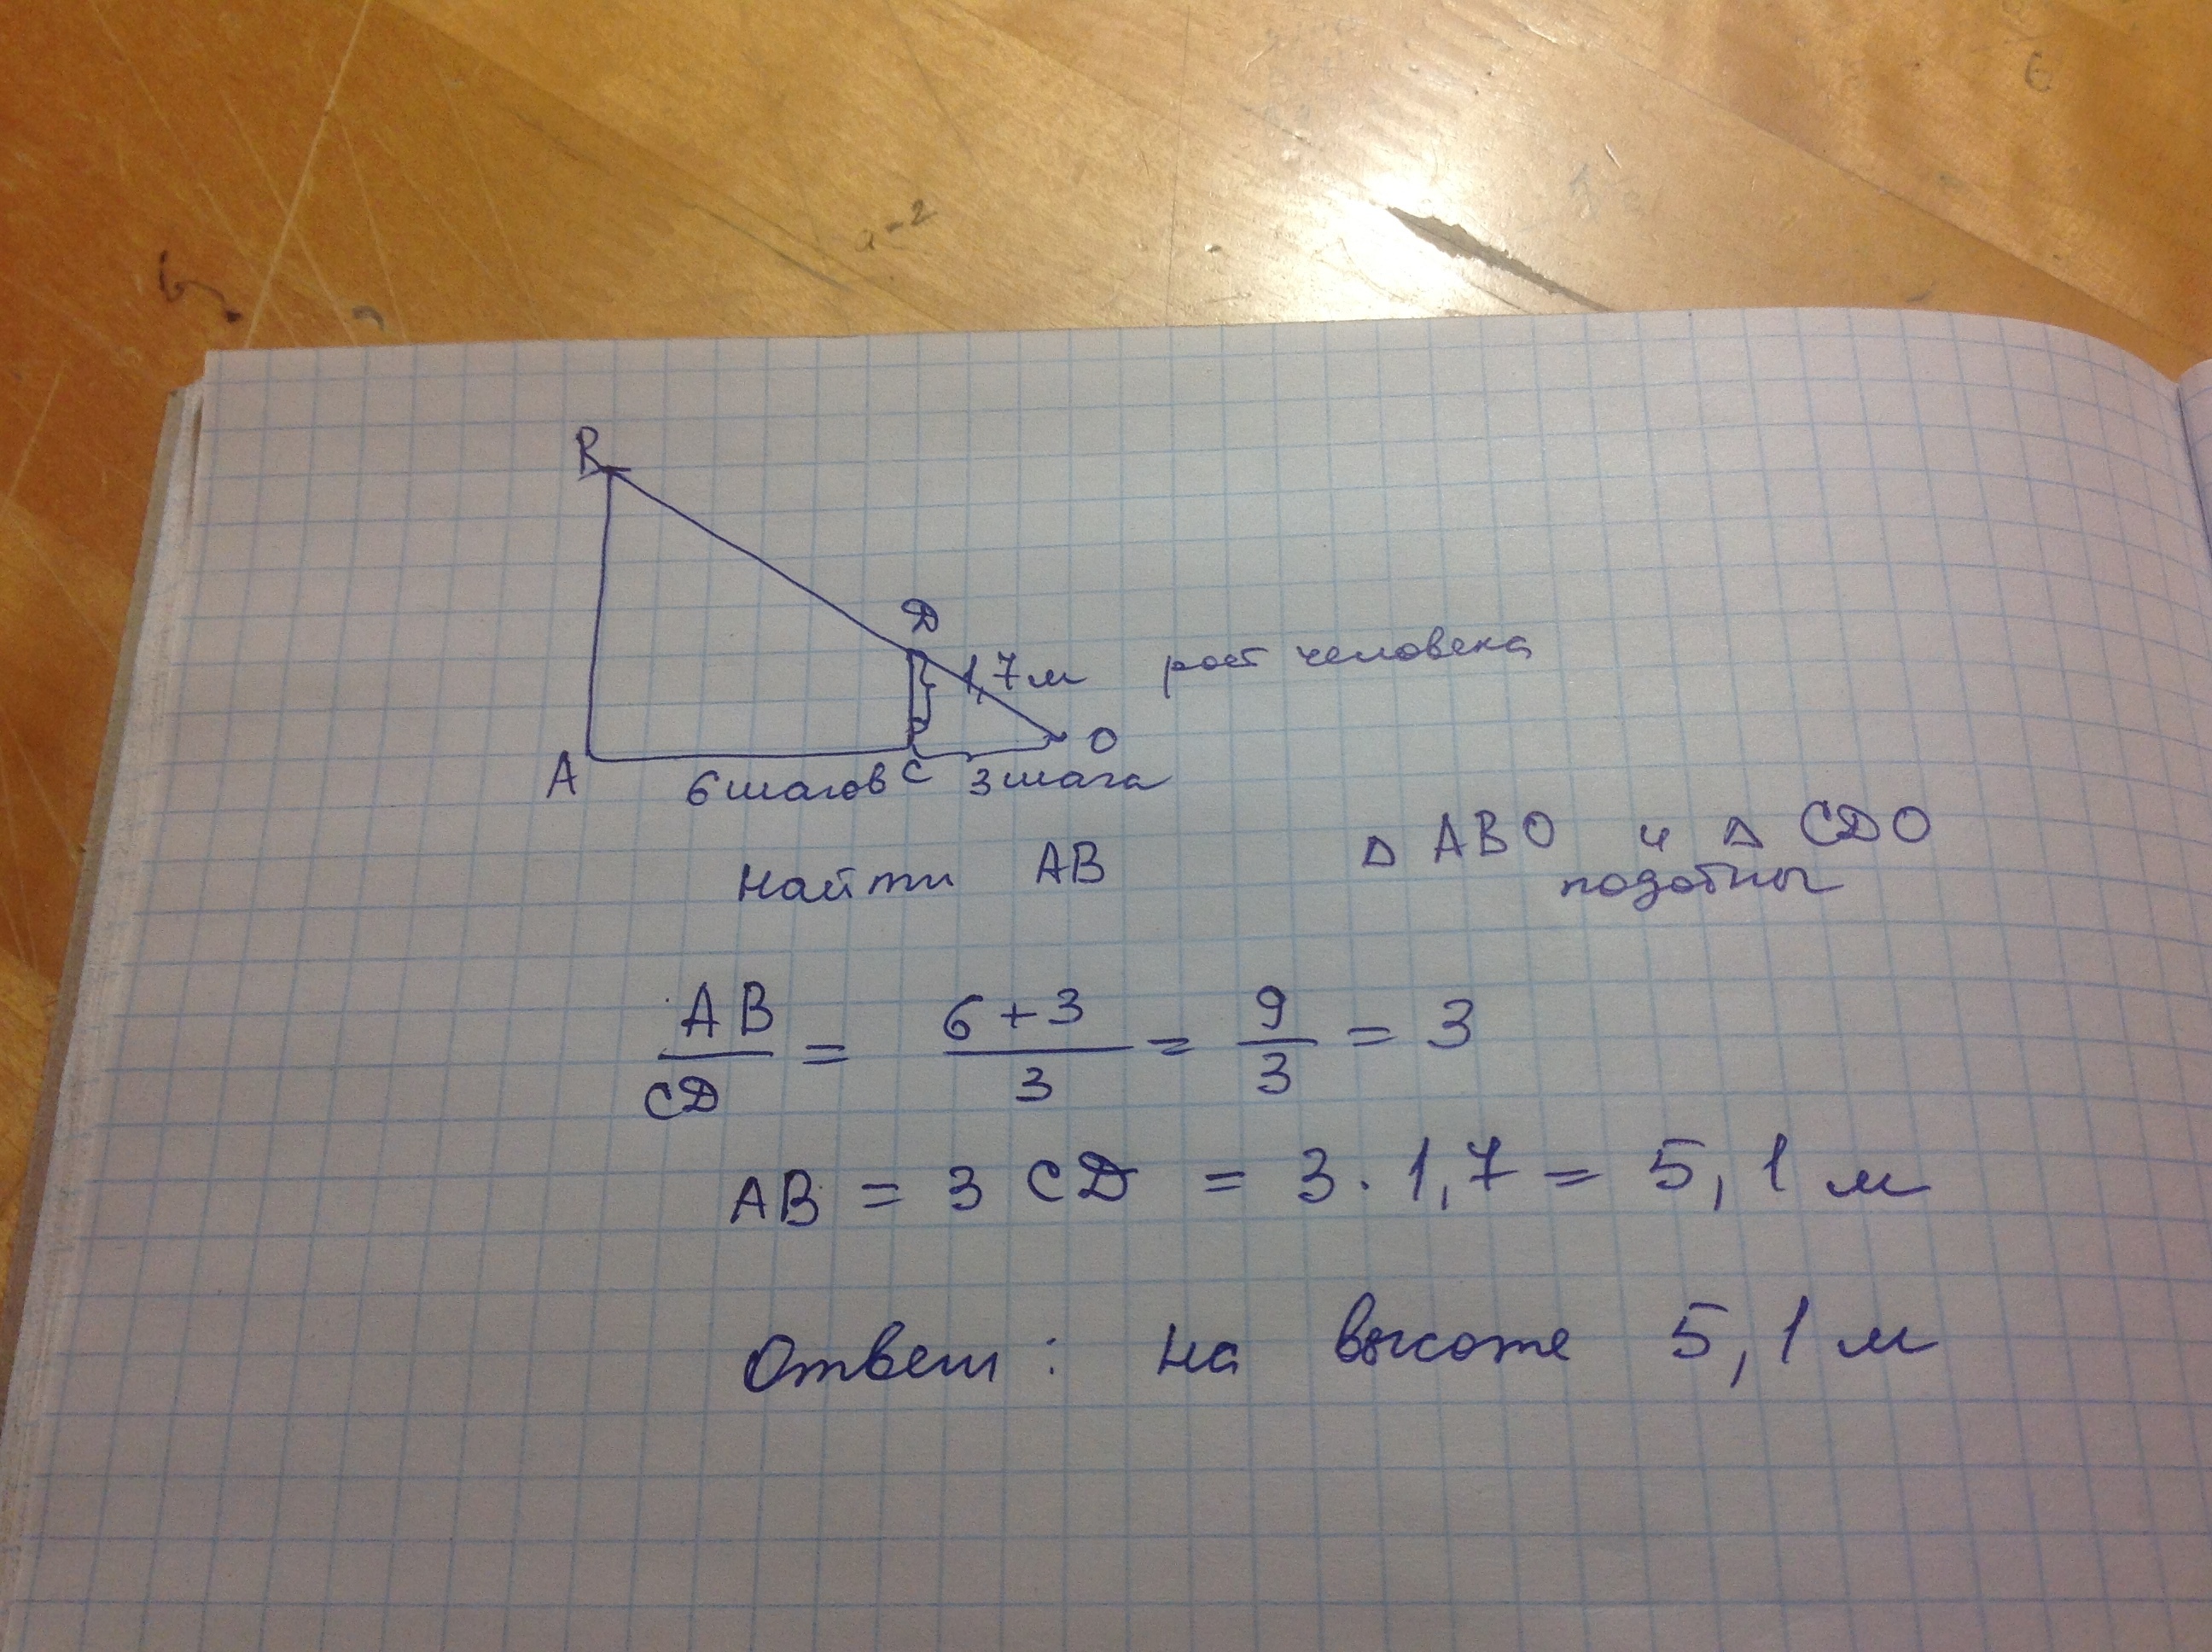 a-2
B
D
1,7 м рост человека
O
A 6 шагов C 3 шага
Найти AB
△ ABO и △ CDO
подобны
AB/CD = (6+3)/3 = 9/3 = 3
AB = 3 CD = 3 · 1,7 = 5,1 м
Ответ: на высоте 5,1 м